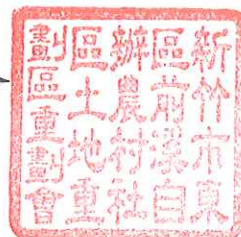 新竹市東
區前溪自
辦農村社
區土地重
劃區重劃會